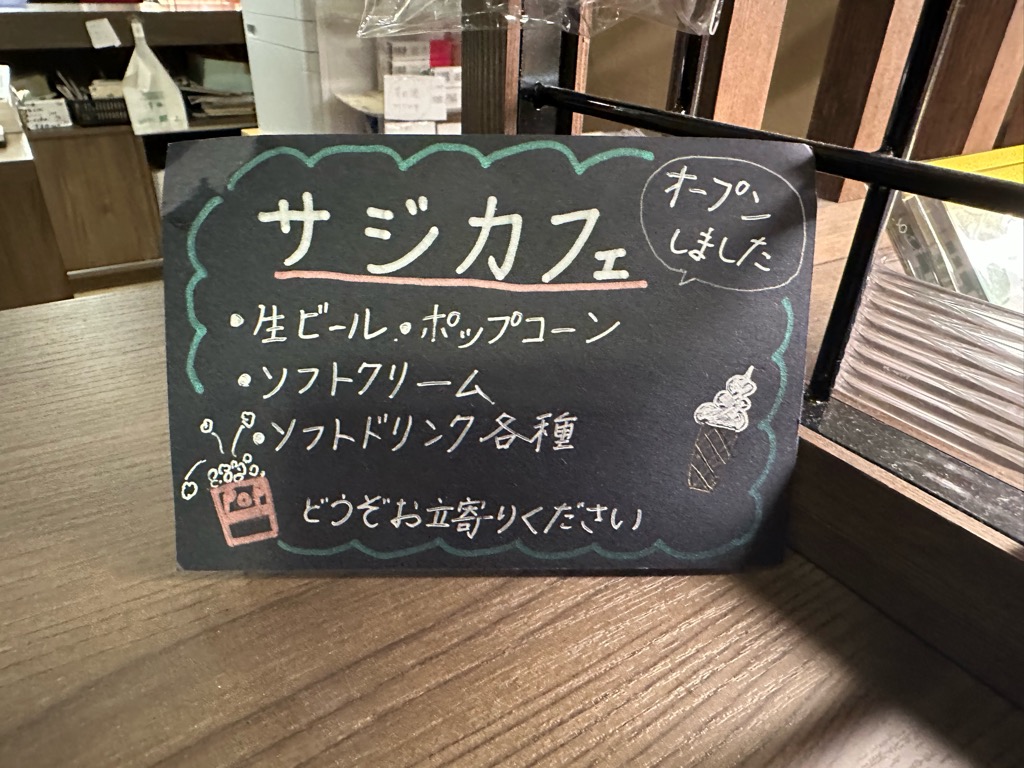 サジカフェ
オープン
しました
・生ビール・ポップコーン
・ソフトクリーム
・ソフトドリンク各種
POP
どうぞお立寄りください